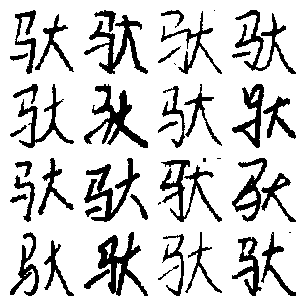 驮 驮 驮 驮
驮 驮 驮 驮
驮 驮 驮 驮
驮 驮 驮 驮